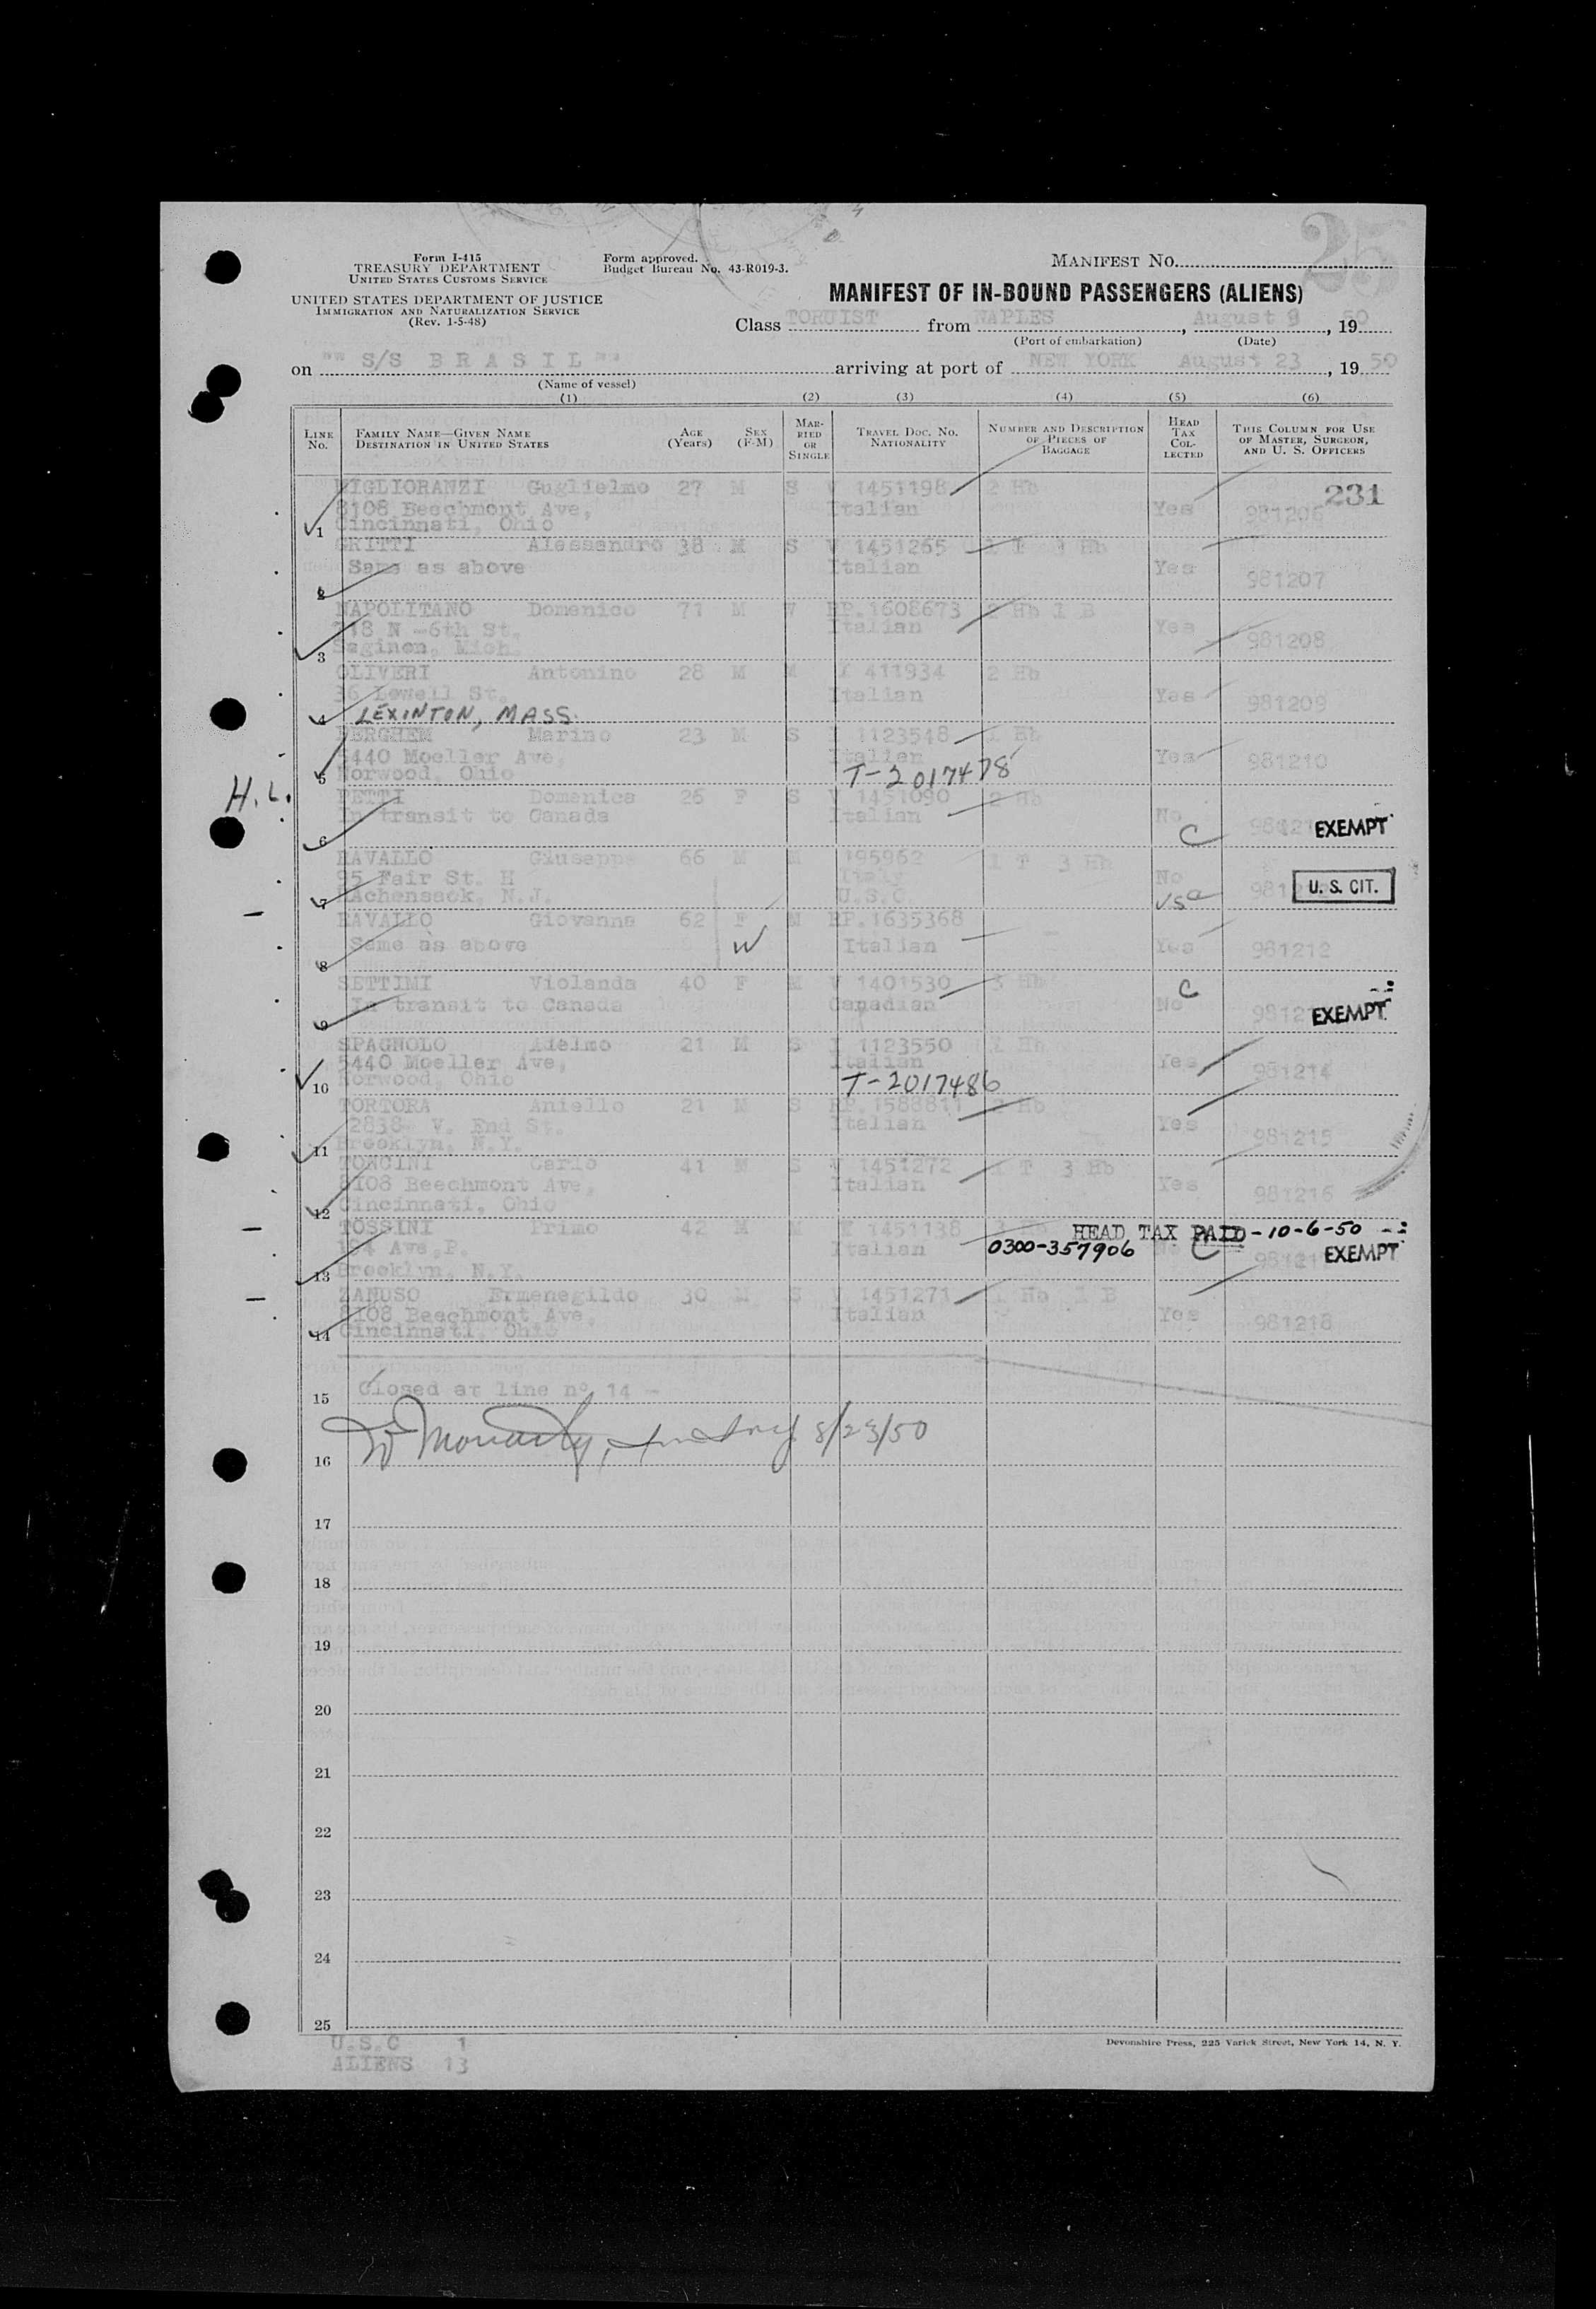 25
Form I-415
TREASURY DEPARTMENT
UNITED STATES CUSTOMS SERVICE
UNITED STATES DEPARTMENT OF JUSTICE
IMMIGRATION AND NATURALIZATION SERVICE
(Rev. 1-5-48)
Form approved.
Budget Bureau No. 43-R019-3.
MANIFEST NO.
MANIFEST OF IN-BOUND PASSENGERS (ALIENS)
Class TORUIST from NAPLES, August 9, 1950
(Port of embarkation) (Date)
on "" S/S B R A S I L "" arriving at port of NEW YORK August 23, 1950
(Name of vessel)
(1) (2) (3) (4) (5) (6)
LINE No. FAMILY NAME—GIVEN NAME DESTINATION IN UNITED STATES AGE (Years) SEX (F-M) MARRIED OR SINGLE TRAVEL DOC. NO. NATIONALITY NUMBER AND DESCRIPTION OF PIECES OF BAGGAGE HEAD TAX COLLECTED THIS COLUMN FOR USE OF MASTER, SURGEON, AND U. S. OFFICERS
MIGLIORANZI Guglielmo 27 M S V 1451198 2 Hb 231
8108 Beechmont Ave, Italian Yes 981206
1 Cincinnati, Ohio
GRITTI Alessandro 38 M S V 1451265 1 T 3 Hb
Same as above Italian Yes 981207
2
NAPOLITANO Domenico 71 M W RP.1608673 2 Hb 1 B
N -6th St. Italian Yes 981208
3 Saginon, Mich.
OLIVERI Antonino 28 M M 411934 2 Hb
36 Lowell St. Italian Yes 981209
4 LEXINTON, MASS.
BERGHEM Marino 23 M S 1123548 1 Hb
5440 Moeller Ave, Italian Yes 981210
5 Norwood, Ohio T-2017478
H.L. PETTI Domenica 26 F S V 1451090 2 Hb
In transit to Canada Italian No C EXEMPT
6
RAVALLO Giuseppe 66 M M 195962 1 T 3 Hb
95 Fair St. H Italy No U. S. CIT.
7 Achensack, N.J. U.S.C. USC
RAVALLO Giovanna 62 F M RP.1635368 -
Same as above W Italian Yes 981212
8
SETTIMI Violanda 40 F M V 1401530 3 Hb C
In transit to Canada Canadian No EXEMPT
9
SPAGNOLO Adelmo 21 M S 1123550 1 Hb
5440 Moeller Ave, Italian Yes 981214
10 Norwood, Ohio T-2017486
TORTORA Aniello 21 M S RP.1588811 2 Hb
2838- W. End St. Italian Yes 981215
11 Brooklyn, N.Y.
TONCINI Carlo 41 M S V 1451272 1 T 3 Hb
8108 Beechmont Ave, Italian Yes 981216
12 Cincinnati, Ohio
TOSSINI Primo 42 M M V 1451138 3 HEAD TAX PAID-10-6-50
Ave.P. Italian 0300-357906 C EXEMPT
13 Brooklyn, N.Y.
ZANUSO Ermenegildo 30 M S V 1451271 1 Hb 1 B
8108 Beechmont Ave, Italian Yes 981218
14 Cincinnati, Ohio
15 Closed at line n° 14 -
16 8/23/50
17
18
19
20
21
22
23
24
25
U.S.C 1
ALIENS 13
Devonshire Press, 225 Varick Street, New York 14, N. Y.